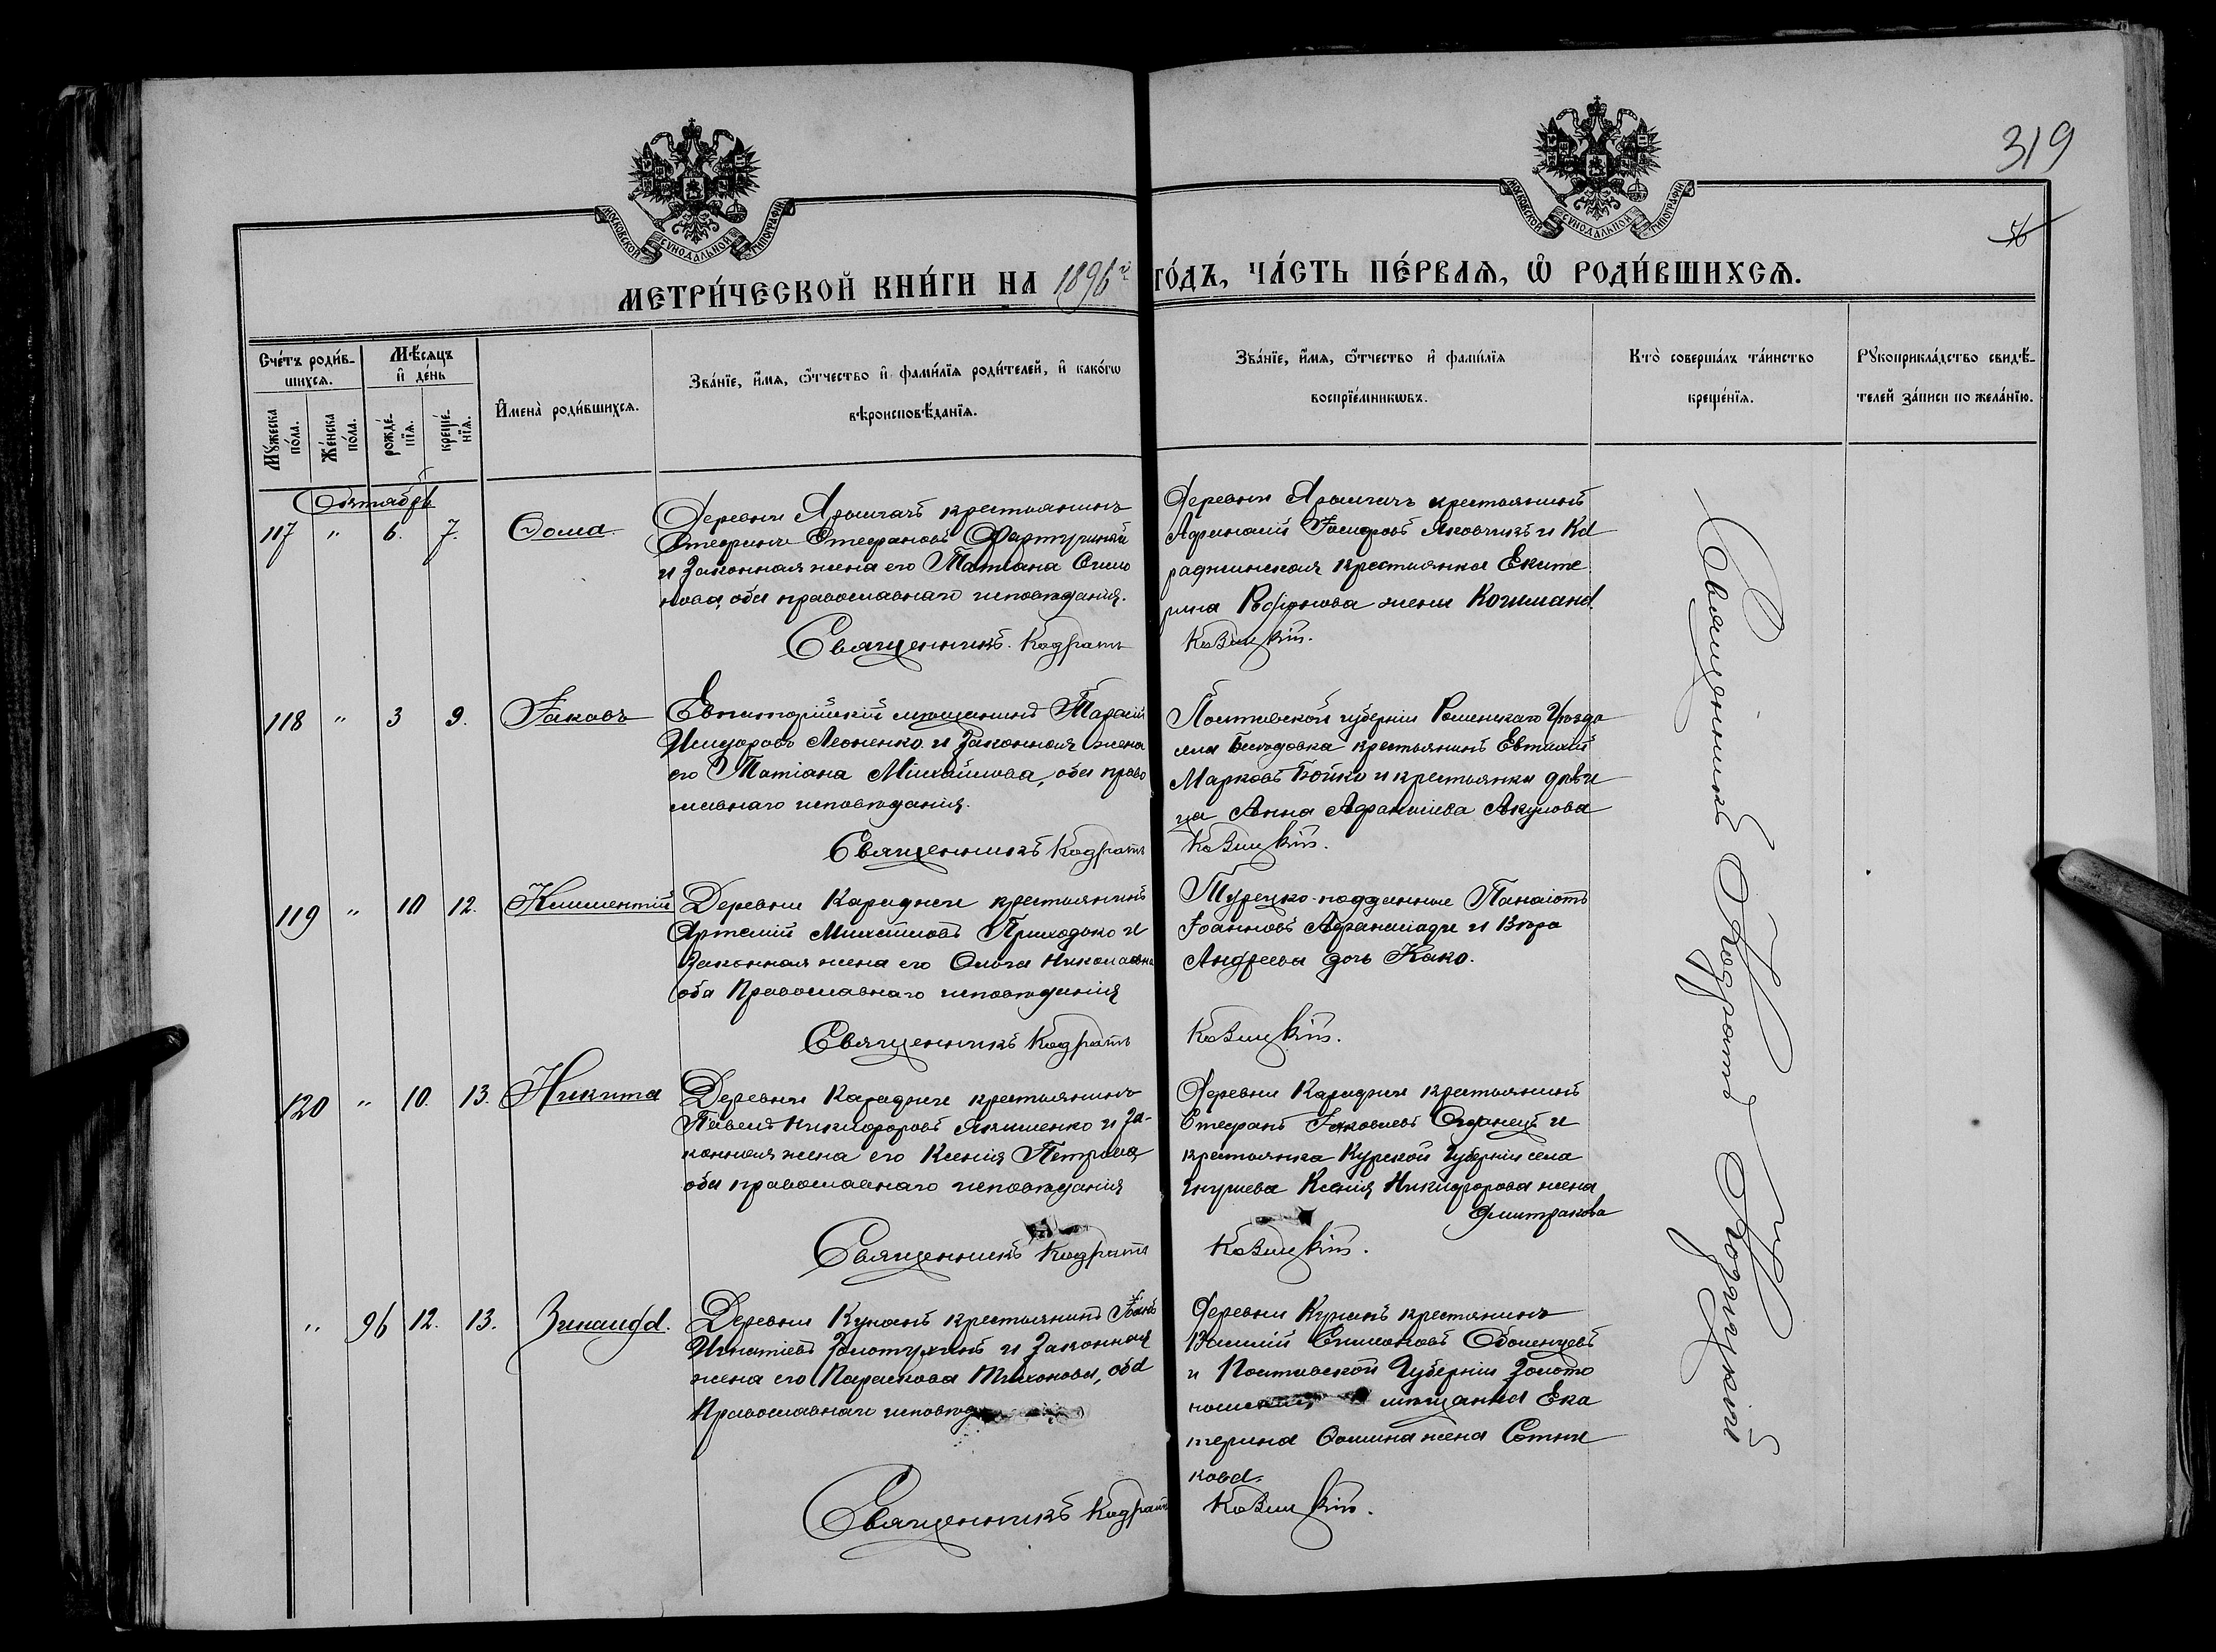 319
56
МОСКОВСКОЙ СѴНОДАЛЬНОЙ ТИПОГРАФІИ
МОСКОВСКОЙ СѴНОДАЛЬНОЙ ТИПОГРАФІИ
МЕТРИ́ЧЕСКОЙ КНИ́ГИ НА 1896 й ГО́ДЪ, ЧА́СТЬ ПЕ́РВАѦ, Ѡ҆ РОДИ́ВШИХСѦ.
Сче́тъ роди́в-
шихсѧ.
Мꙋ́жеска по́ла.
Же́нска по́ла.
Мѣ́сѧцъ и҆ де́нь
рожде́-нїѧ.
креще́-нїѧ.
И҆мена̀ роди́вшихсѧ.
Зва́нїе, и҆́мѧ, ѻ҆́тчество и҆ фамі́лїѧ роди́телей, и҆ како́гѡ
вѣроисповѣ́данїѧ.
Зва́нїе, и҆́мѧ, ѻ҆́тчество и҆ фамі́лїѧ
воспрїе́мникѡвъ.
Кто̀ соверша́лъ та́инство
креще́нїѧ.
Рꙋкоприкла́дство свидѣ́-
телей за́писи по жела́нїю.
Октябрь
117 " 6. 7. Ѳома
Деревни крестьянинъ
Стефановъ
и законная жена его Татіана Симо
нова, оба православнаго исповѣданія.
Священникъ Кодратъ
Деревни крестьянинъ
Яковчикъ и Ка
раджинская крестьянка Екате
рина жена
118 " 3 9. Іаковъ
Евпаторійскій мѣщанинъ Тарасій
Исидоровъ Леоненко и законная жена
его Татіана Михайлова, оба право
славнаго исповѣданія.
Священникъ Кодратъ
Полтавской губерніи Роменскаго Уѣзда
села крестьянинъ Евтихій
Марковъ Бойко и крестьянка дѣви
ца Анна Афанасіева Акулова
119 " 10 12. Климентій
Деревни Караджи крестьянинъ
Артемій Михайловъ Приходько и
законная жена его Ольга Николаевна
оба Православнаго исповѣданія
Священникъ Кодратъ
Турецко-подданные Панаіотъ
Іоанновъ Афанасіади и Вѣра
Андреева дочь Како.
120 " 10. 13. Никита
Деревни Караджи крестьянинъ
Павелъ Никифоровъ Якименко и за-
конная жена его Ксенія Петрова,
оба православнаго исповѣданія
Священникъ Кодратъ
Деревни Караджи крестьянинъ
Стефанъ Іаковлевъ и
крестьянка Курской Губерніи села
Ксенія Никифорова жена
Дмитракова
" 96 12. 13. Зинаида.
Деревни Кунанъ крестьянинъ Іоаннъ
Игнатіевъ Золотухинъ и законная
жена его Параскева Тихонова, оба
Православнаго исповѣд
Священникъ Кодратъ
Деревни Кунанъ крестьянинъ
Василій
и Полтавской Губерніи Золото
мѣщанка Ека
терина Ѳомина жена Сотни
кова.
Священникъ Кодратъ